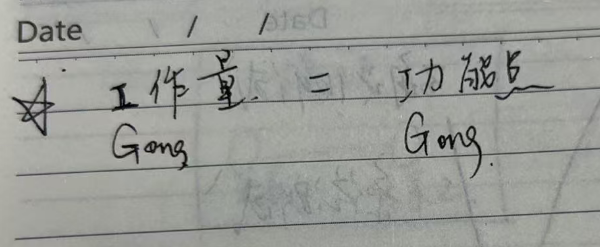 Date / /
☆ 工作量. = 功能点
Gong Gong.